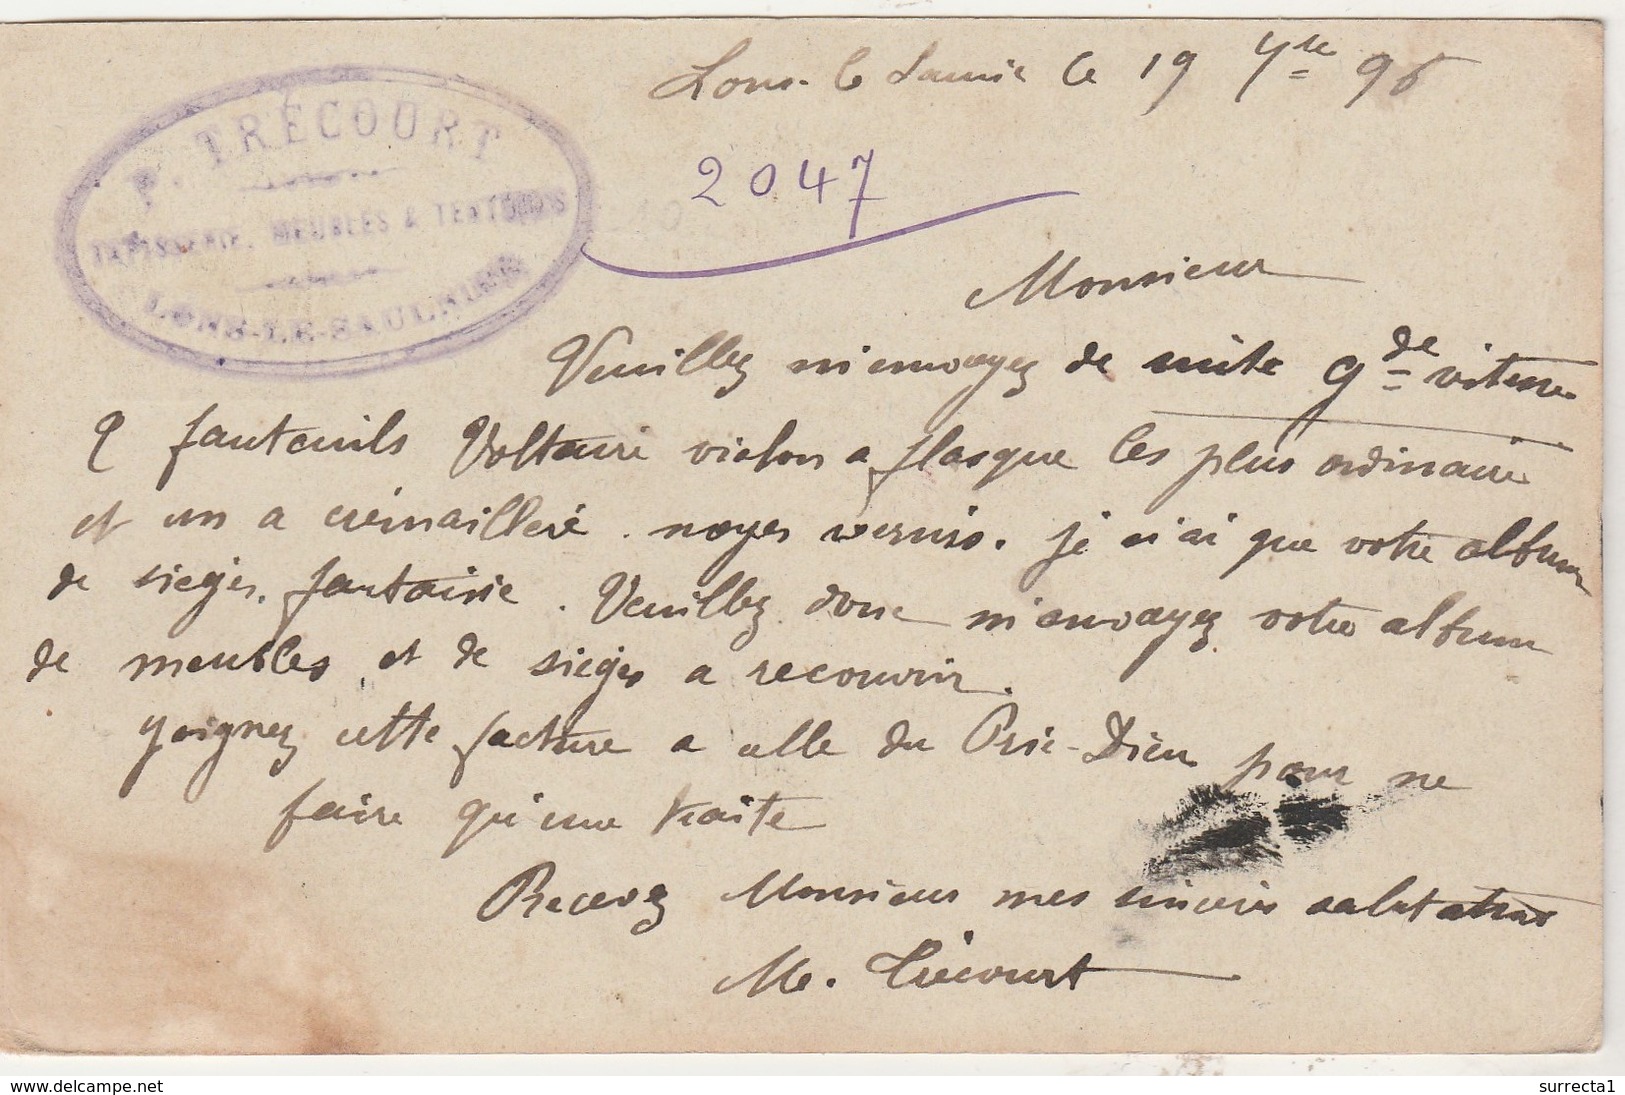 P. TRÉCOURT
TAPISSERIE, MEUBLES & TENTURES
LONS-LE-SAULNIER
Lons-le Saunier le 19 7bre 96
2047
Monsieur
Veuillez m'envoyez de suite gde vitesse
2 fauteuils Voltaire violon a flasque les plus ordinaire
et un a crémaillère. noyer vernis. je n'ai que votre album
de sieges, fantaisie. Veuillez donc m'envoyez votre album
de meubles et de sieges a recouvrir.
Joignez cette facture a celle du Prie-Dieu pour ne
faire qu'une traite
Recevez Monsieur mes sincères salutations
M. Trécourt
www.delcampe.net
surrecta1